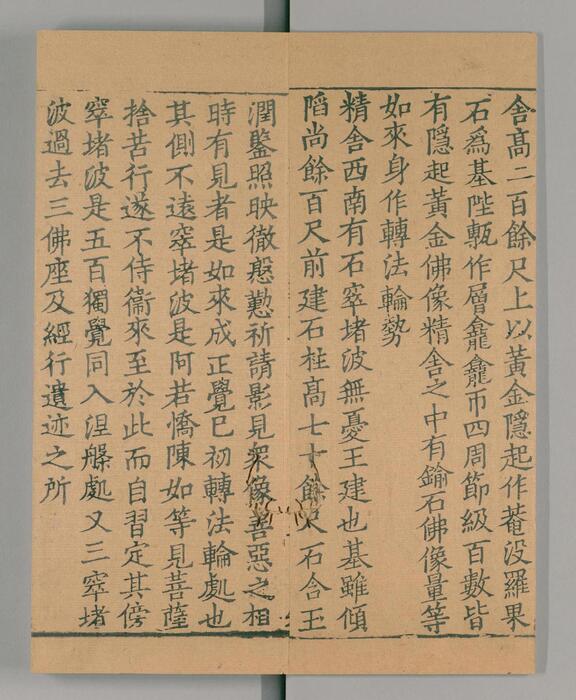 舍高二百餘尺上以黃金隱起作菴没羅果
石爲基陛甎作層龕龕帀四周節級百數皆
有隱起黃金佛像精舍之中有鍮石佛像量等
如來身作轉法輪勢
精舍西南有石窣堵波無憂王建也基雖傾
陷尚餘百尺前建石柱高七十餘尺石含玉
潤鑒照映徹慇懃祈請影見衆像善惡之相
時有見者是如來成正覺已初轉法輪處也
其側不遠窣堵波是阿若憍陳如等見菩薩
捨苦行遂不侍衞來至於此而自習定其傍
窣堵波是五百獨覺同入涅槃處又三窣堵
波過去三佛座及經行遺迹之所